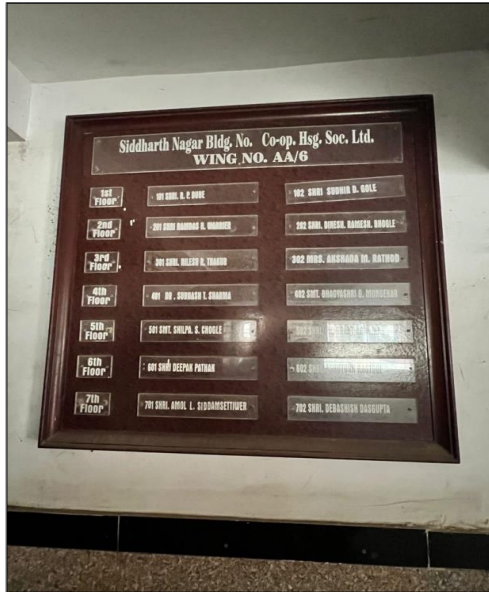 Siddharth Nagar Bldg. No. Co-op. Hsg. Soc. Ltd.
WING NO. AA/6
1st Floor
101 SHRI. R. P. DUBE
102 SHRI SUDHIR D. GOLE
2nd Floor
201 SHRI RAMDAS R. WARRIER
202 SHRI. DINESH. RAMESH. BHOGLE
3rd Floor
301 SHRI. NILESH D. THAKUR
302 MRS. AKSHADA M. RATHOD
4th Floor
401 DR. SUBHASH T. SHARMA
402 SMT. BHAGYASHRI
5th Floor
501 SMT. SHILPA. S. CHOGLE
502
6th Floor
601 SHRI DEEPAK PATHAK
602
7th Floor
701 SHRI. AMOL L. SIDDAMSETTIWER
702 SHRI. DEBASHISH DASGUPTA